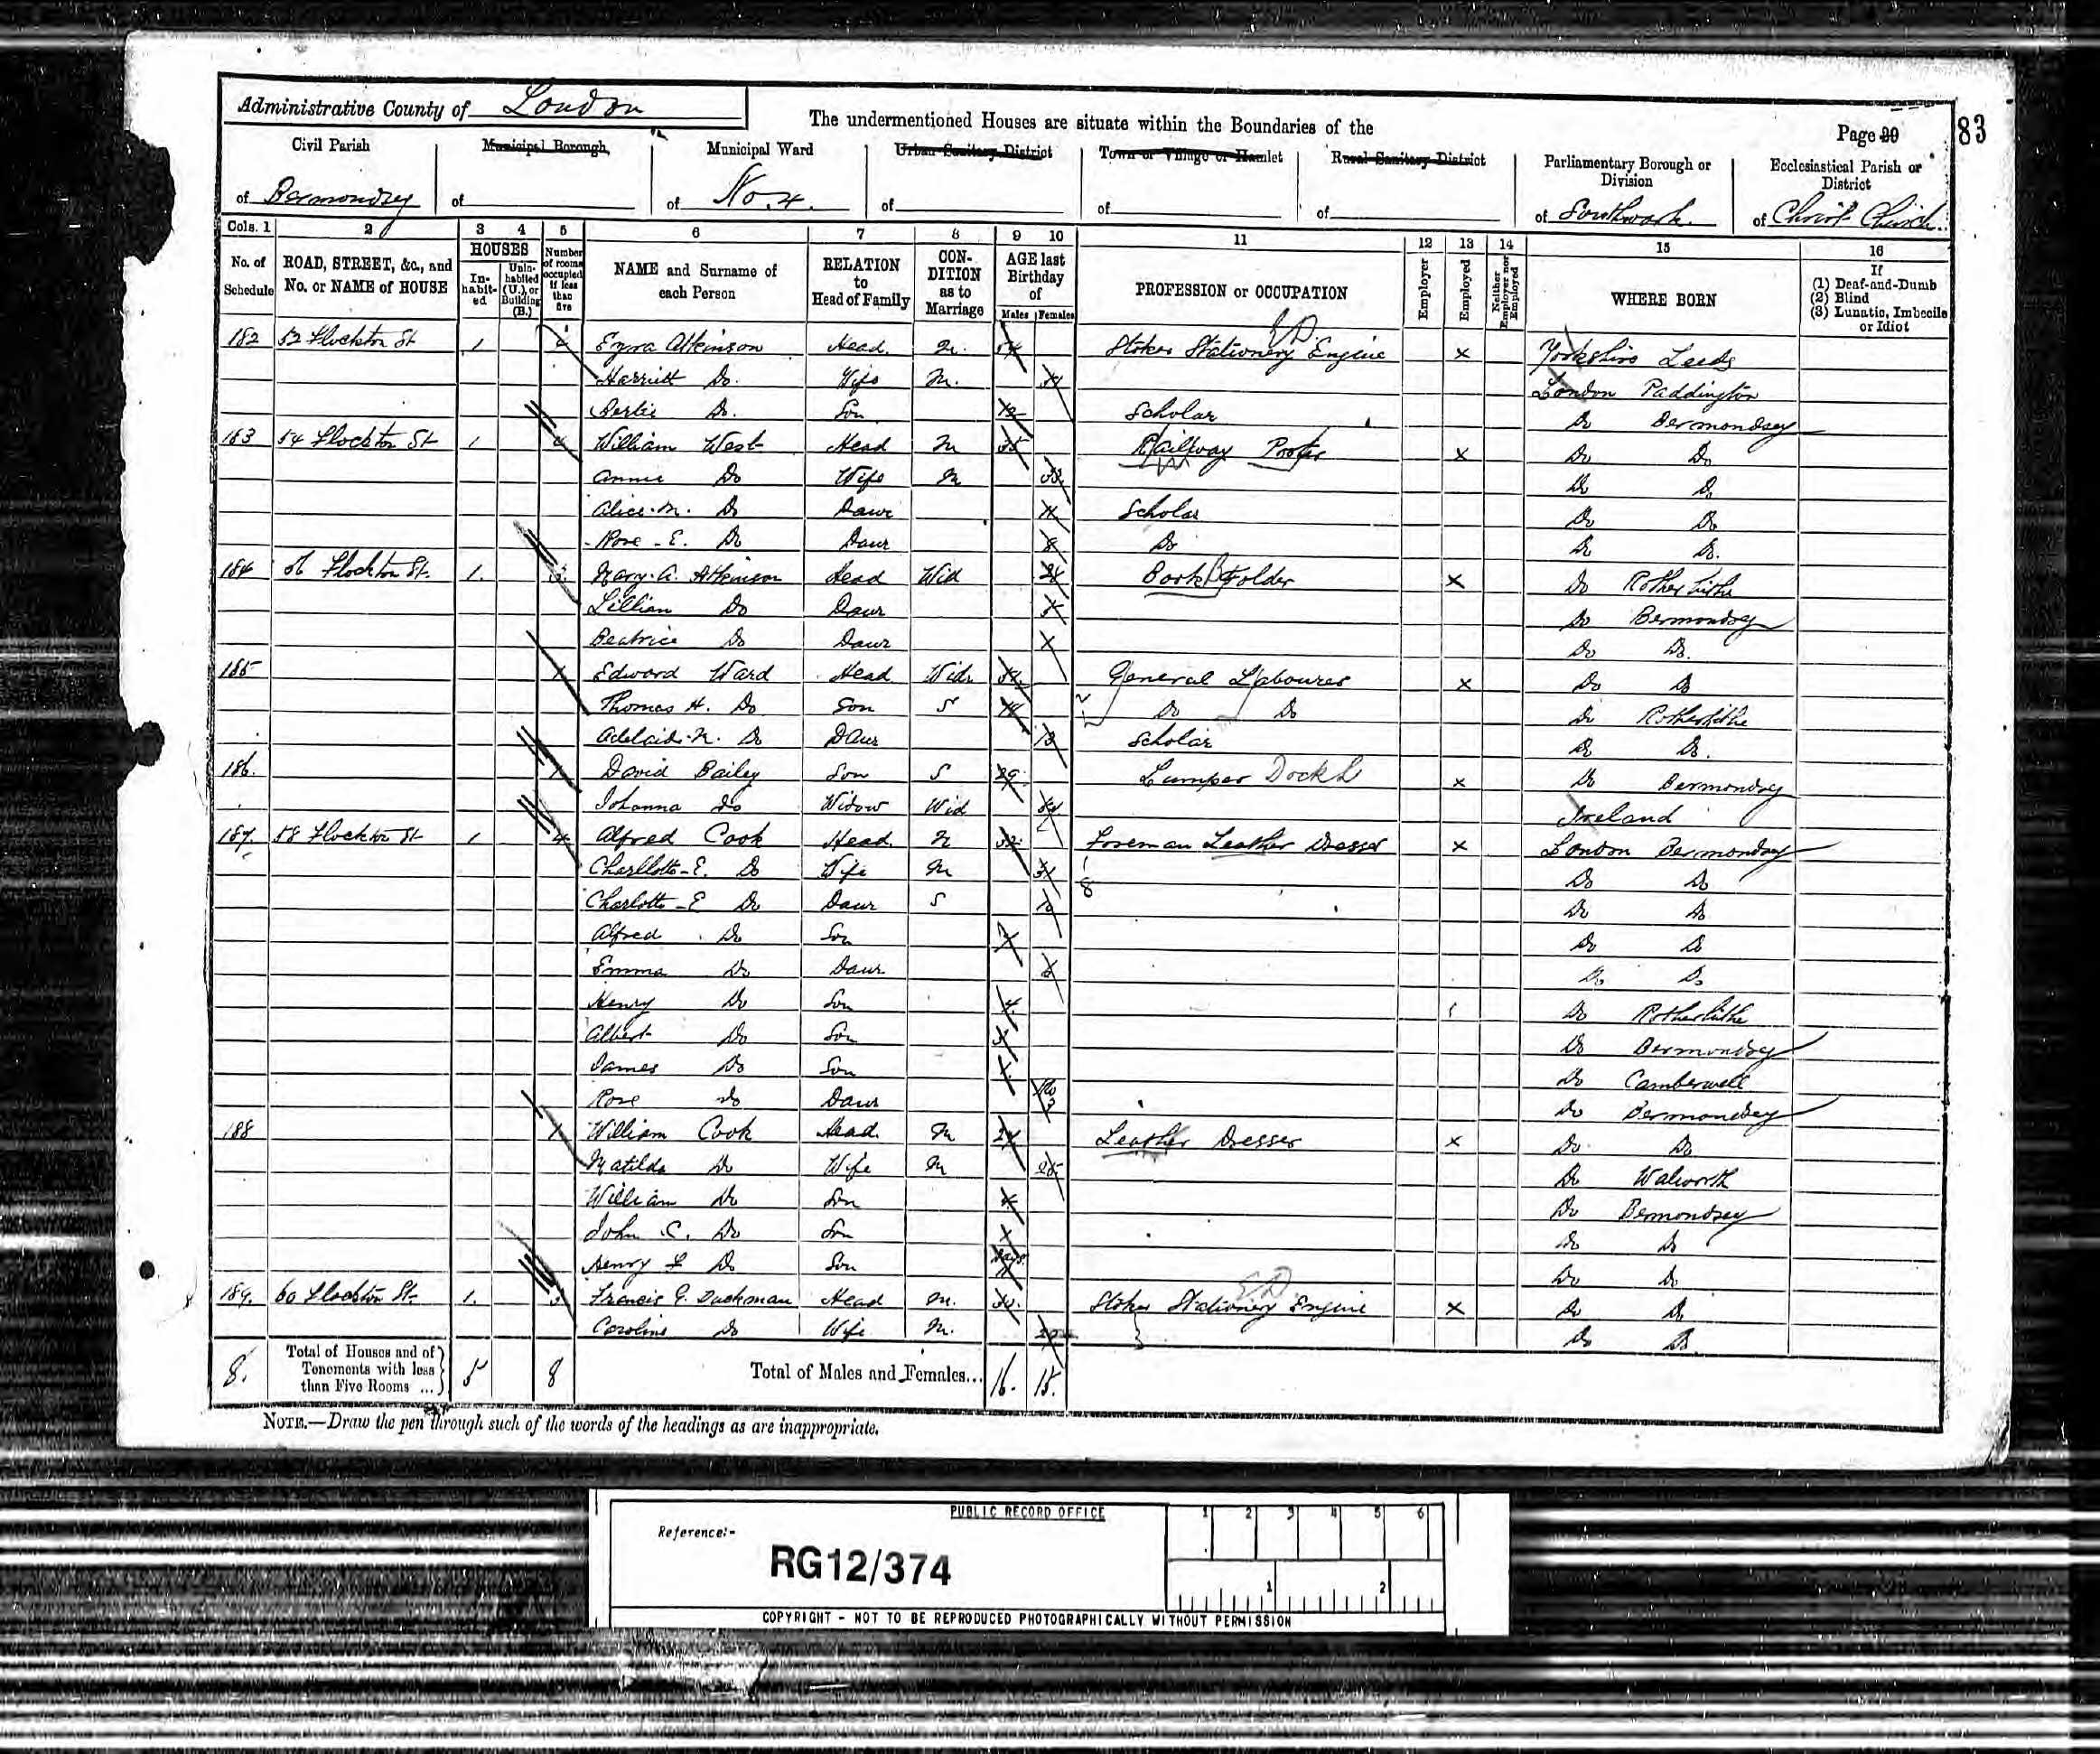 Administrative County of London
The undermentioned Houses are situate within the Boundaries of the
Page 20
83
Civil Parish of Bermondsey
Municipal Borough of
Municipal Ward of No. 4.
Urban Sanitary District of
Town or Village or Hamlet of
Rural Sanitary District of
Parliamentary Borough or Division of Southwark.
Ecclesiastical Parish or District of Christ Church.
Cols. 1 2 3 4 5 6 7 8 9 10 11 12 13 14 15 16
No. of Schedule
ROAD, STREET, &c., and No. or NAME of HOUSE
HOUSES
In-habit-ed
Unin-habited (U.), or Building (B.)
Number of rooms occupied if less than five
NAME and Surname of each Person
RELATION to Head of Family
CON-DITION as to Marriage
AGE last Birthday of
Males Females
PROFESSION or OCCUPATION
Employer
Employed
Neither Employer nor Employed
WHERE BORN
If (1) Deaf-and-Dumb (2) Blind (3) Lunatic, Imbecile or Idiot
182 52 Flockton St 1 4 Ezra Atkinson Head. M. 54 Stoker Stationery Engine x Yorkshire Leeds
Harriett Do. Wife M. London Paddington
Bertie Do. Son 12 Scholar Do Bermondsey
183 54 Flockton St 1 4 William West Head M 35 Railway Porter x Do Do
Annie Do Wife M 33 Do Do
Alice. M. Do Daur 11 Scholar Do Do
Rose - E. Do Daur 8 Do Do Do.
184 56 Flockton St. 1. 3 Mary. A. Atkinson Head Wid Book Folder x Do Rotherhithe
Lillian Do Daur Do Bermondsey
Beatrice Do Daur Do Do.
185 1 Edward Ward Head Widr General Labourer x Do Do
Thomas H. Do Son S Do Do Do Rotherhithe
Adelaide. M. Do Daur 13 Scholar Do Do.
186. 1 David Bailey Son S 29 Lumper Dock L x Do Bermondsey
Johanna Do Widow Wid Ireland
187. 58 Flockton St 1 4 Alfred Cook Head. M 32 Foreman Leather Dresser x London Bermondsey
Charllotte - E. Do Wife M 31 Do Do
Charlotte - E Do Daur S Do Do
Alfred Do Son Do Do
Emma Do Daur Do Do
Henry Do Son 4 Do Rotherhithe
Albert Do Son Do Bermondsey
James Do Son Do Camberwell
Rose Do Daur Mo 3 Do Bermondsey
188 1 William Cook Head. M Leather Dresser x Do Do.
Matilda Do Wife M 25 Do Walworth
William Do Son Do Bermondsey
John C. Do Son Do Do
Henry Do Son Days Do Do
189. 60 Flockton St. 1. 3 Francis G. Duckman Head M. Stoker Stationery Engine x Do Do
Caroline Do Wife M. Do Do.
8. Total of Houses and of Tenements with less than Five Rooms ...} 5 8 Total of Males and Females... 16. 15.
NOTE.—Draw the pen through such of the words of the headings as are inappropriate.
PUBLIC RECORD OFFICE
1 2 3 4 5 6
Reference:-
RG12/374
1 2
COPYRIGHT - NOT TO BE REPRODUCED PHOTOGRAPHICALLY WITHOUT PERMISSION